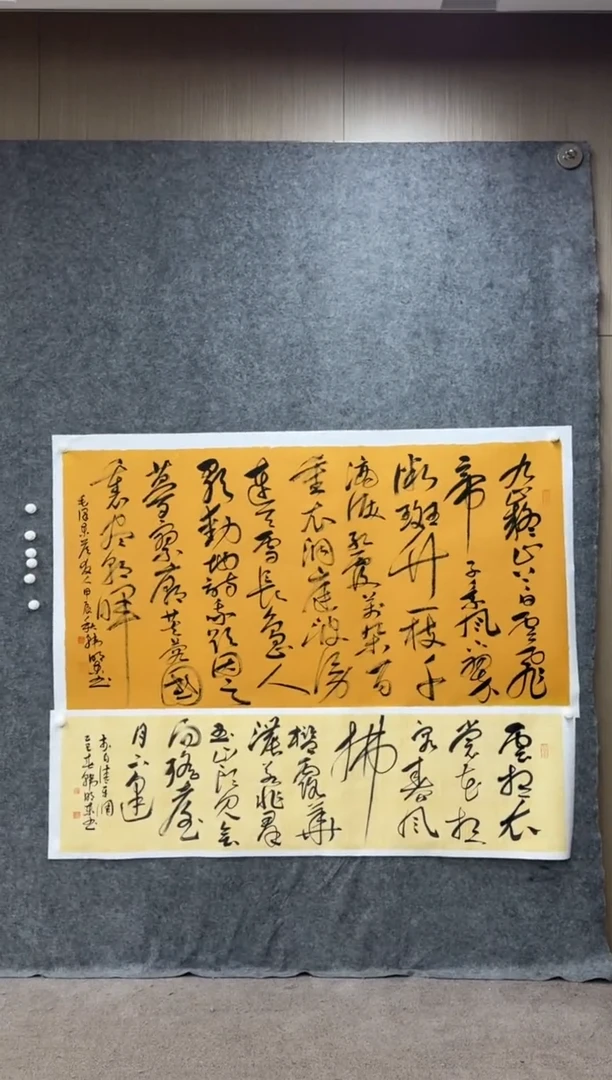 九嶷山上白雲飛
帝子乘風下翠
微斑竹一枝千
滴淚紅霞萬朵百
重衣洞庭波湧
連天雪長島人
歌動地詩我欲因之
夢寥廓芙蓉國
裏盡朝暉
毛澤東答友人甲辰秋韓明书
雲想衣
裳花想
容春風
拂
檻露華
濃若非群
玉山頭見會
向瑤臺
月下逢
李白清平調
乙巳春韓明東书